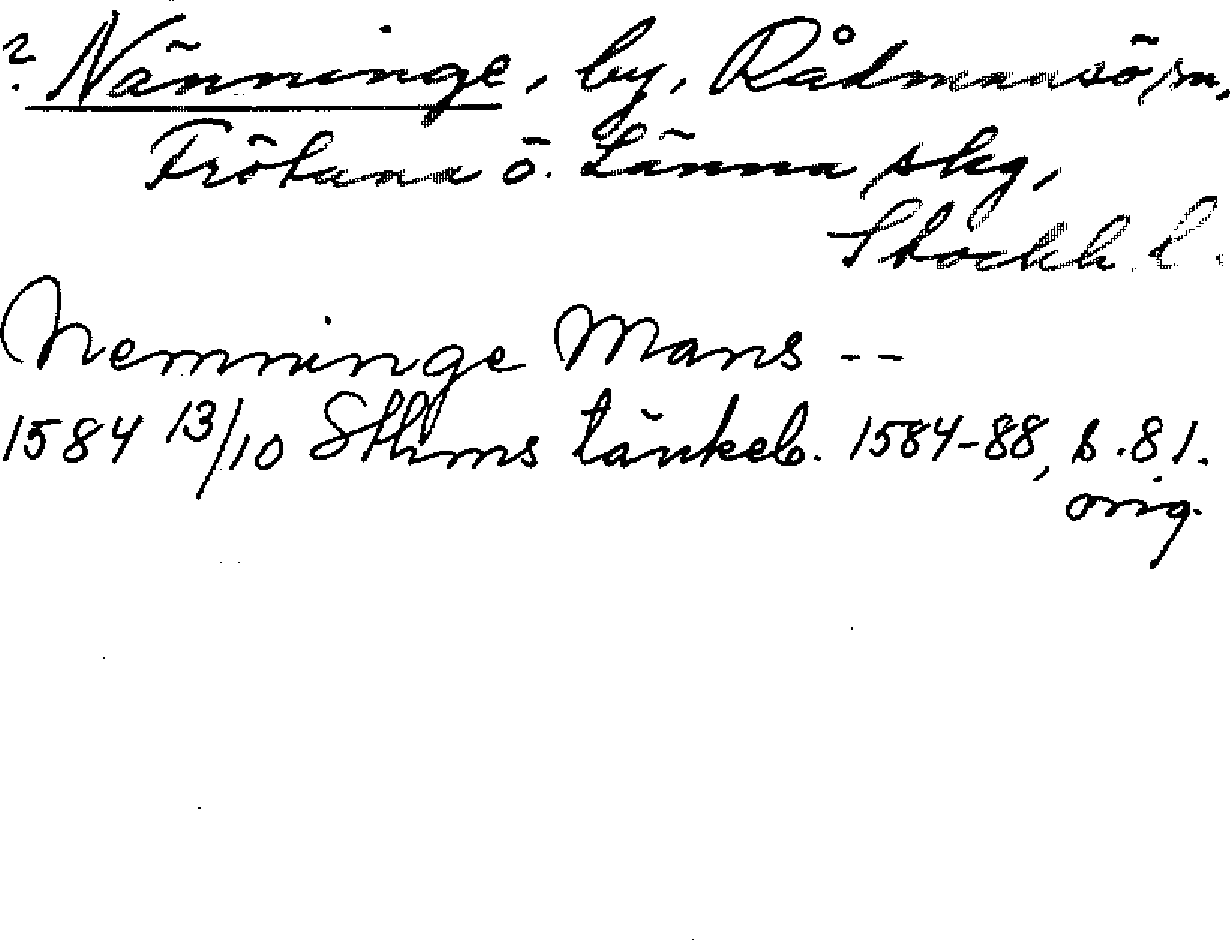 ? Nänninge, by, Rådmansö sn,
Frötuna o. Länna skg,
Stockh. l.
Nemninge Mans --
1584 13/10 Sthms tänkeb. 1584-88, s. 81.
orig.